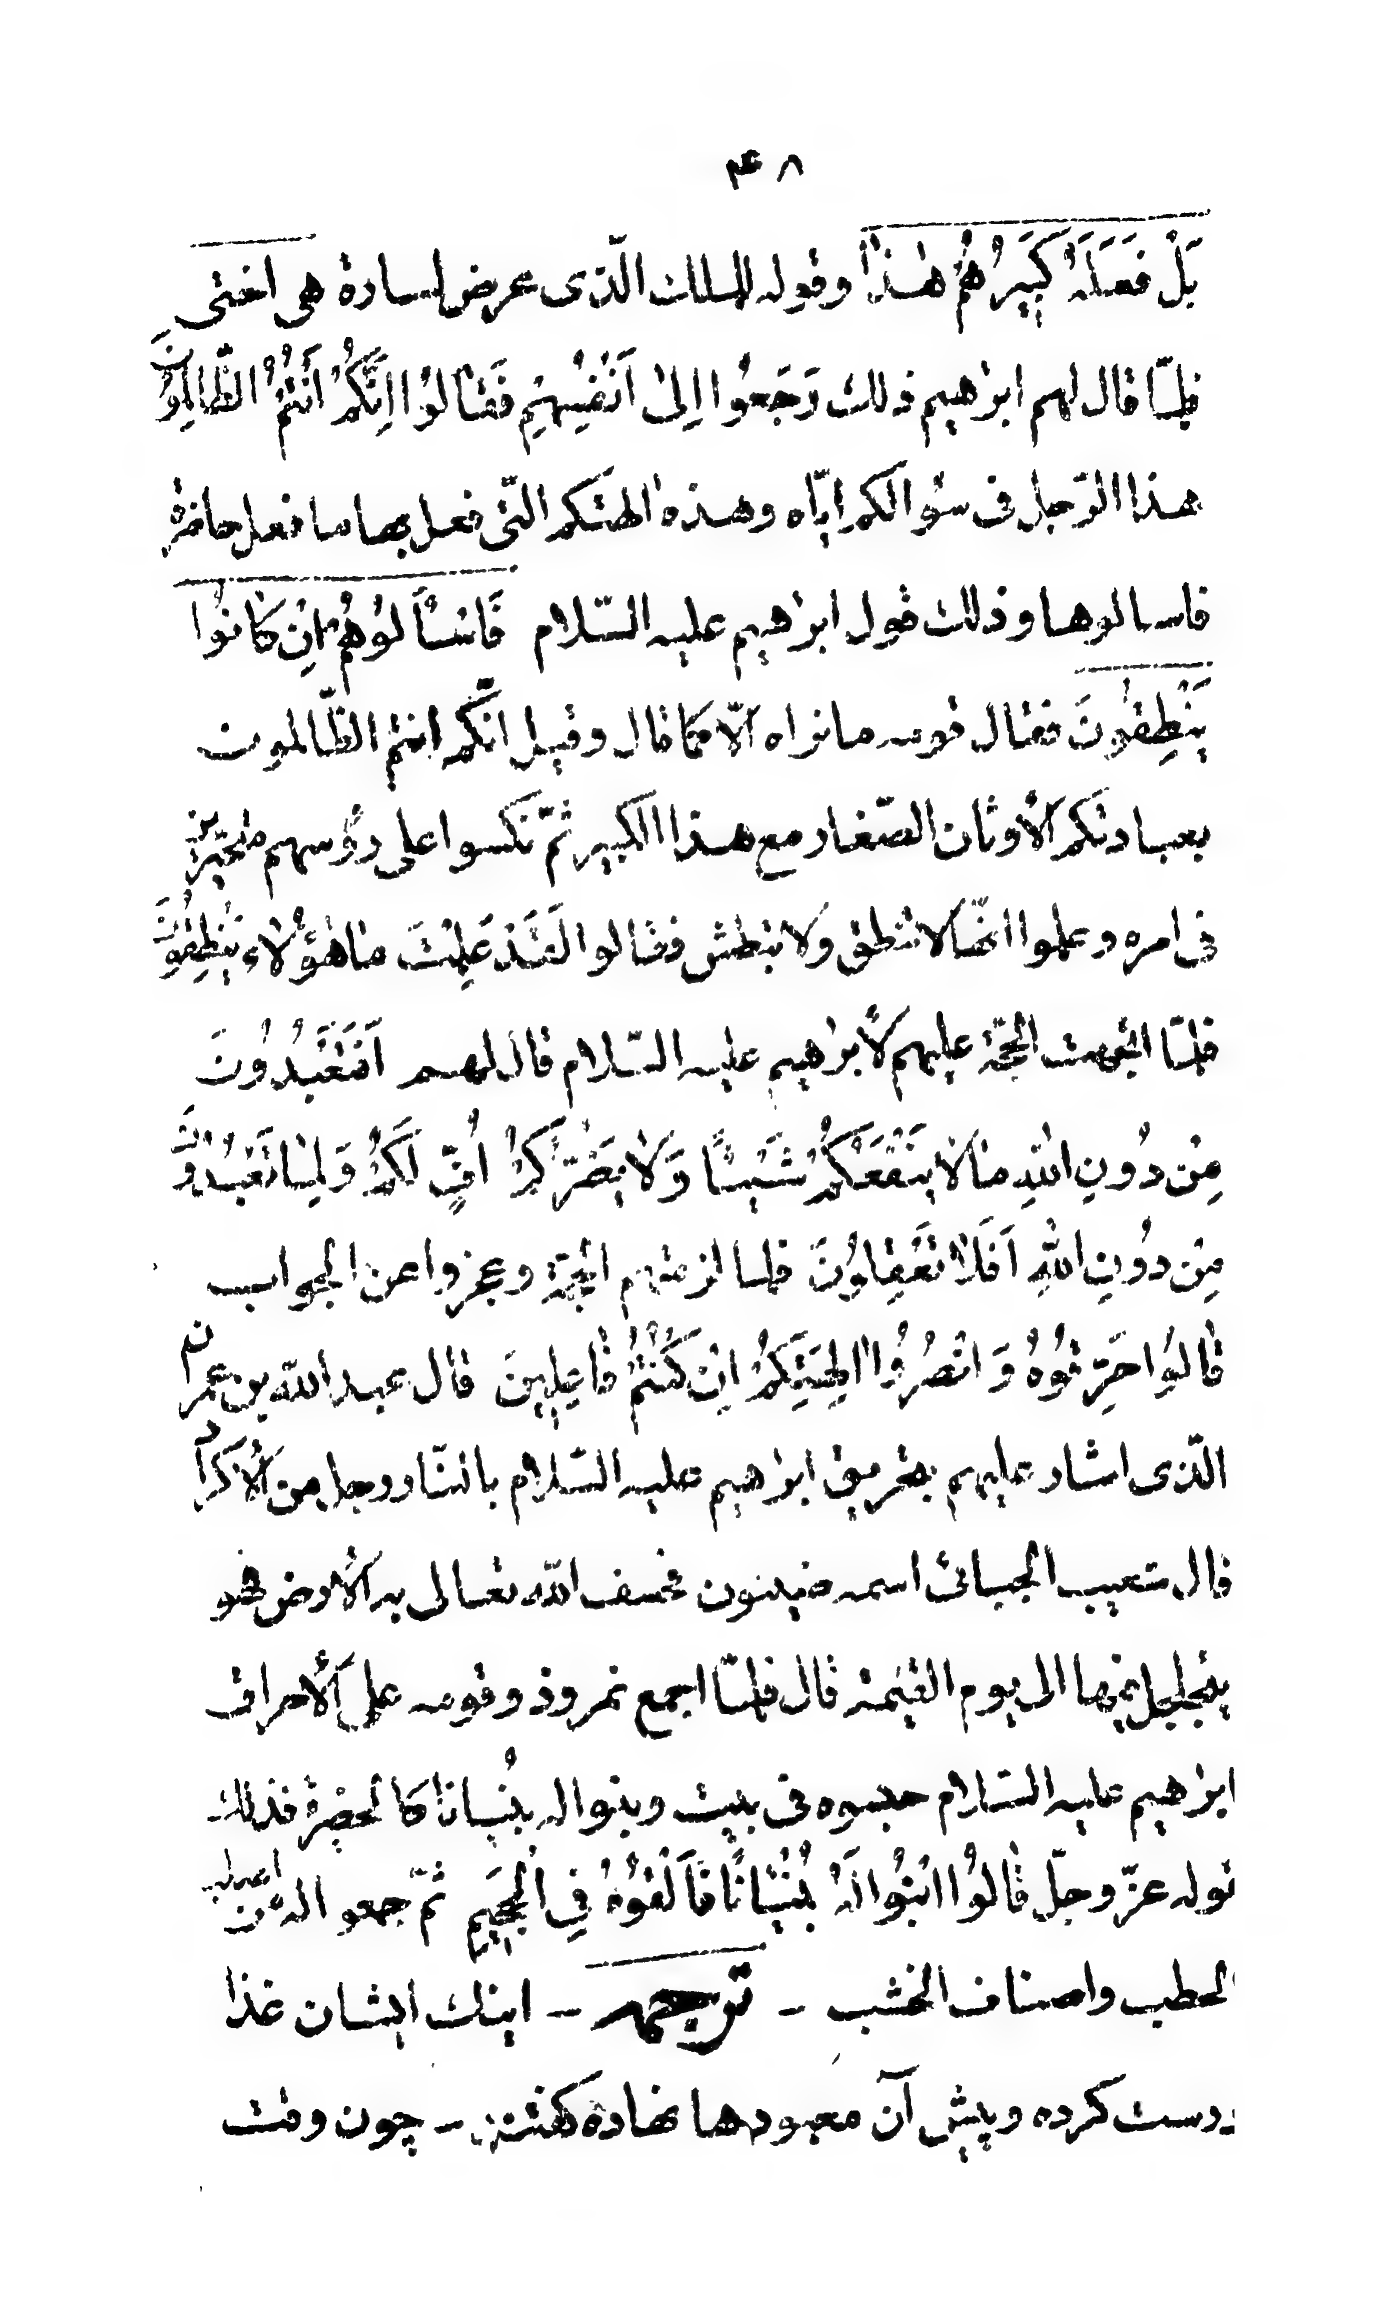 ۴۸
بَلْ فَعَلَهُ كَبِيرُهُمْ هٰذٰا وقوله للملك الّذى عرض لسارة هى اختى
فلمّا قال لهم ابرٰهيم ذلك رَجَعُوا اِلىٰ اَنْفُسِهِمْ فَقٰالُوا اِنَّكُمْ اَنْتُمُ الظّٰالِمُونَ
هذا الرّجل فى سؤالكم ايّاه وهذه اٰلهتكم الّتى فعل بها ما فعل حاضرة
فاسالوها وذلك قول ابرٰهيم عليه السّلام فَاسْـَٔالُوهُمْ اِنْ كٰانُوا
يَنْطِقُونَ فقال قومه ما نراه الّا كما قال وقيل انّكم انتم الظّالمون
بعبادتكم الأوثان الصّغار مع هذا الكبير ثمّ نكسوا على رؤسهم متحيّرين
فى امره وعلموا انّها لا تنطق ولا تبطش فقالوا لَقَدْ عَلِمْتَ مٰا هٰؤُلٰاءِ يَنْطِقُونَ
فلمّا اتّجهت الحجّة عليهم لأبرٰهيم عليه السّلام قال لهم اَفَتَعْبُدُونَ
مِنْ دُونِ اللّٰهِ مٰا لٰا يَنْفَعُكُمْ شَيْئًا وَلٰا يَضُرُّكُمْ اُفٍّ لَكُمْ وَلِمٰا تَعْبُدُونَ
مِنْ دُونِ اللّٰهِ اَفَلٰا تَعْقِلُونَ فلما لزمتهم الحجّة وعجزوا عن الجواب
قٰالُوا حَرِّقُوهُ وَانْصُرُوا اٰلِهَتَكُمْ اِنْ كُنْتُمْ فٰاعِلِينَ قال عبد اللّه بن عمر انّ
الّذى اشار عليهم بتحريق ابرٰهيم عليه السّلام بالنّار رجل من الأكراد
قال شعيب الجبائى اسمه ضينون فخسف اللّه تعالى به الأرض فهو
يتجلجل فيها الى يوم القيٰمة قال فلمّا اجمع نمروذ وقومه على الأحراق
ابرٰهيم عليه السّلام حبسوه فى بيت وبنوا له بُنيانا كالحضرة فذلك
قوله عزّ وجلّ قٰالُوا ابْنُوا لَهُ بُنْيٰانًا فَاَلْقُوهُ فِى الْجَحِيمِ ثمّ جمعوا له من اصلب
الحطب واصناف الخشب - ترجمه - اينك ايشان غذا
درست كرده وپيش آن معبودها نهاده گفتند - چون وقت